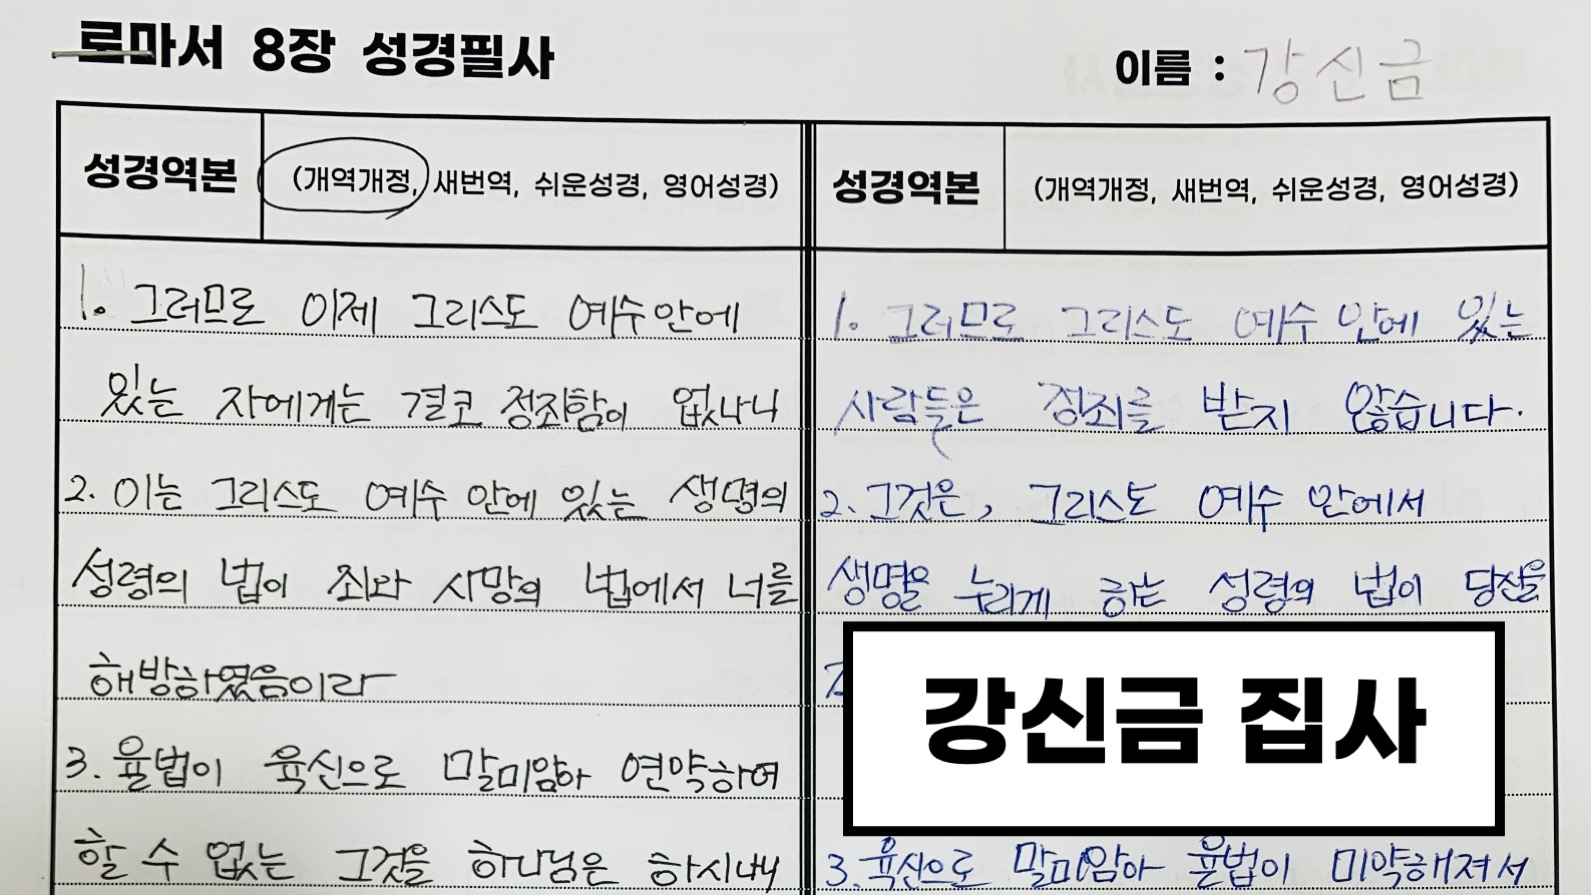 로마서 8장 성경필사
이름 : 강신금
성경역본 (개역개정, 새번역, 쉬운성경, 영어성경)
1. 그러므로 이제 그리스도 예수 안에
있는 자에게는 결코 정죄함이 없나니
2. 이는 그리스도 예수 안에 있는 생명의
성령의 법이 죄와 사망의 법에서 너를
해방하였음이라
3. 율법이 육신으로 말미암아 연약하여
할 수 없는 그것을 하나님은 하시나니
성경역본 (개역개정, 새번역, 쉬운성경, 영어성경)
1. 그러므로 그리스도 예수 안에 있는
사람들은 정죄를 받지 않습니다.
2. 그것은, 그리스도 예수 안에서
생명을 누리게 하는 성령의 법이 당신을
강신금 집사
3. 육신으로 말미암아 율법이 미약해져서